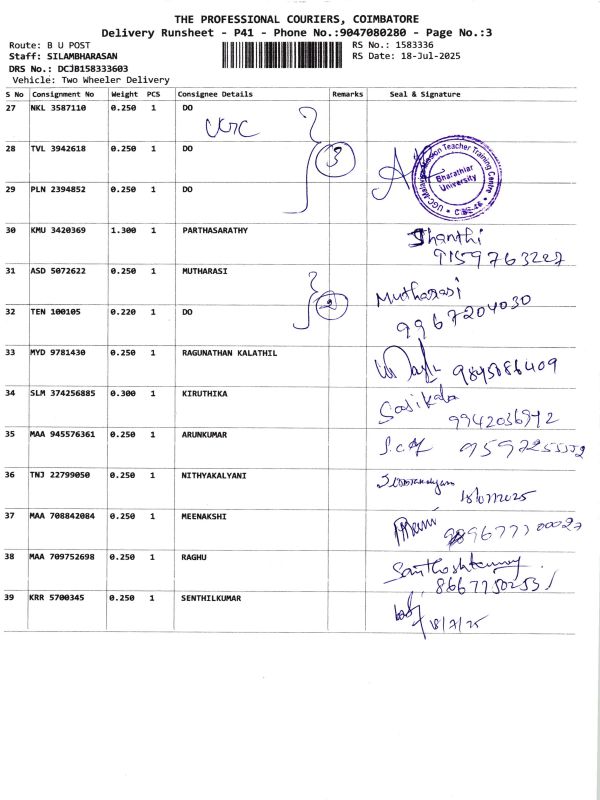 THE PROFESSIONAL COURIERS, COIMBATORE
Delivery Runsheet - P41 - Phone No.:9047080280 - Page No.:3
Route: B U POST
RS No.: 1583336
Staff: SILAMBHARASAN
RS Date: 18-Jul-2025
DRS No.: DCJB158333603
Vehicle: Two Wheeler Delivery
S No Consignment No. Weight PCS Consignee Details Remarks Seal & Signature
27 NKL 3587110 0.250 1 DO
UGC
28 TVL 3942618 0.250 1 DO
3
Bharathiar University
29 PLN 2394852 0.250 1 DO
30 KMU 3420369 1.300 1 PARTHASARATHY
Shanthi
9159763227
31 ASD 5072622 0.250 1 MUTHARASI
Mutharasi
2
32 TEN 100105 0.220 1 DO
9967204030
33 MYD 9781430 0.250 1 RAGUNATHAN KALATHIL
9845086409
34 SLM 374256885 0.300 1 KIRUTHIKA
Sasikala
9942036972
35 MAA 945576361 0.250 1 ARUNKUMAR
36 TNJ 22799050 0.250 1 NITHYAKALYANI
18/07/2025
37 MAA 708842084 0.250 1 MEENAKSHI
38 MAA 709752698 0.250 1 RAGHU
8667750253
39 KRR 5700345 0.250 1 SENTHILKUMAR
18/7/25